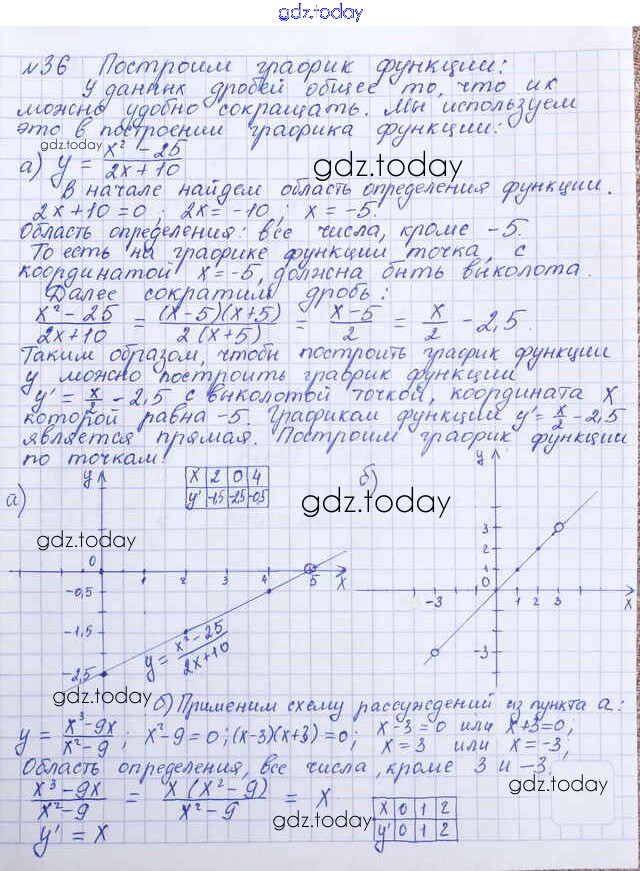 gdz.today
№36 Построим график функции:
У данных дробей общее то, что их
можно удобно сокращать. Мы используем
это в построении графика функции:
gdz.today
а) y = (x² - 25)/(2x + 10)
gdz.today
В начале найдем область определения функции.
2x + 10 = 0; 2x = -10; x = -5.
Область определения: все числа, кроме -5.
То есть на графике функции точка, с
координатой x = -5, должна быть выколота.
Далее сократим дробь:
(x² - 25)/(2x + 10) = ((x - 5)(x + 5))/(2(x + 5)) = (x - 5)/2 = x/2 - 2,5.
Таким образом, чтобы построить график функции
y можно построить график функции
y' = x/2 - 2,5 с выколотой точкой, координата x
которой равна -5. Графиком функции y' = x/2 - 2,5
является прямая. Построим график функции
по точкам:
а)
y
x 2 0 4
y' -1,5 -2,5 -0,5
gdz.today
0
1 2 3 4 5 x
-0,5
-1,5
-2,5
y = (x² - 25)/(2x + 10)
б)
y
gdz.today
3
2
1
0
-3 1 2 3 x
-3
б) Применим схему рассуждений из пункта а:
y = (x³ - 9x)/(x² - 9); x² - 9 = 0; (x - 3)(x + 3) = 0; x - 3 = 0 или x + 3 = 0;
x = 3 или x = -3;
Область определения, все числа, кроме 3 и -3.
gdz.today
(x³ - 9x)/(x² - 9) = (x(x² - 9))/(x² - 9) = x
x 0 1 2
y' 0 1 2
gdz.today
y' = x